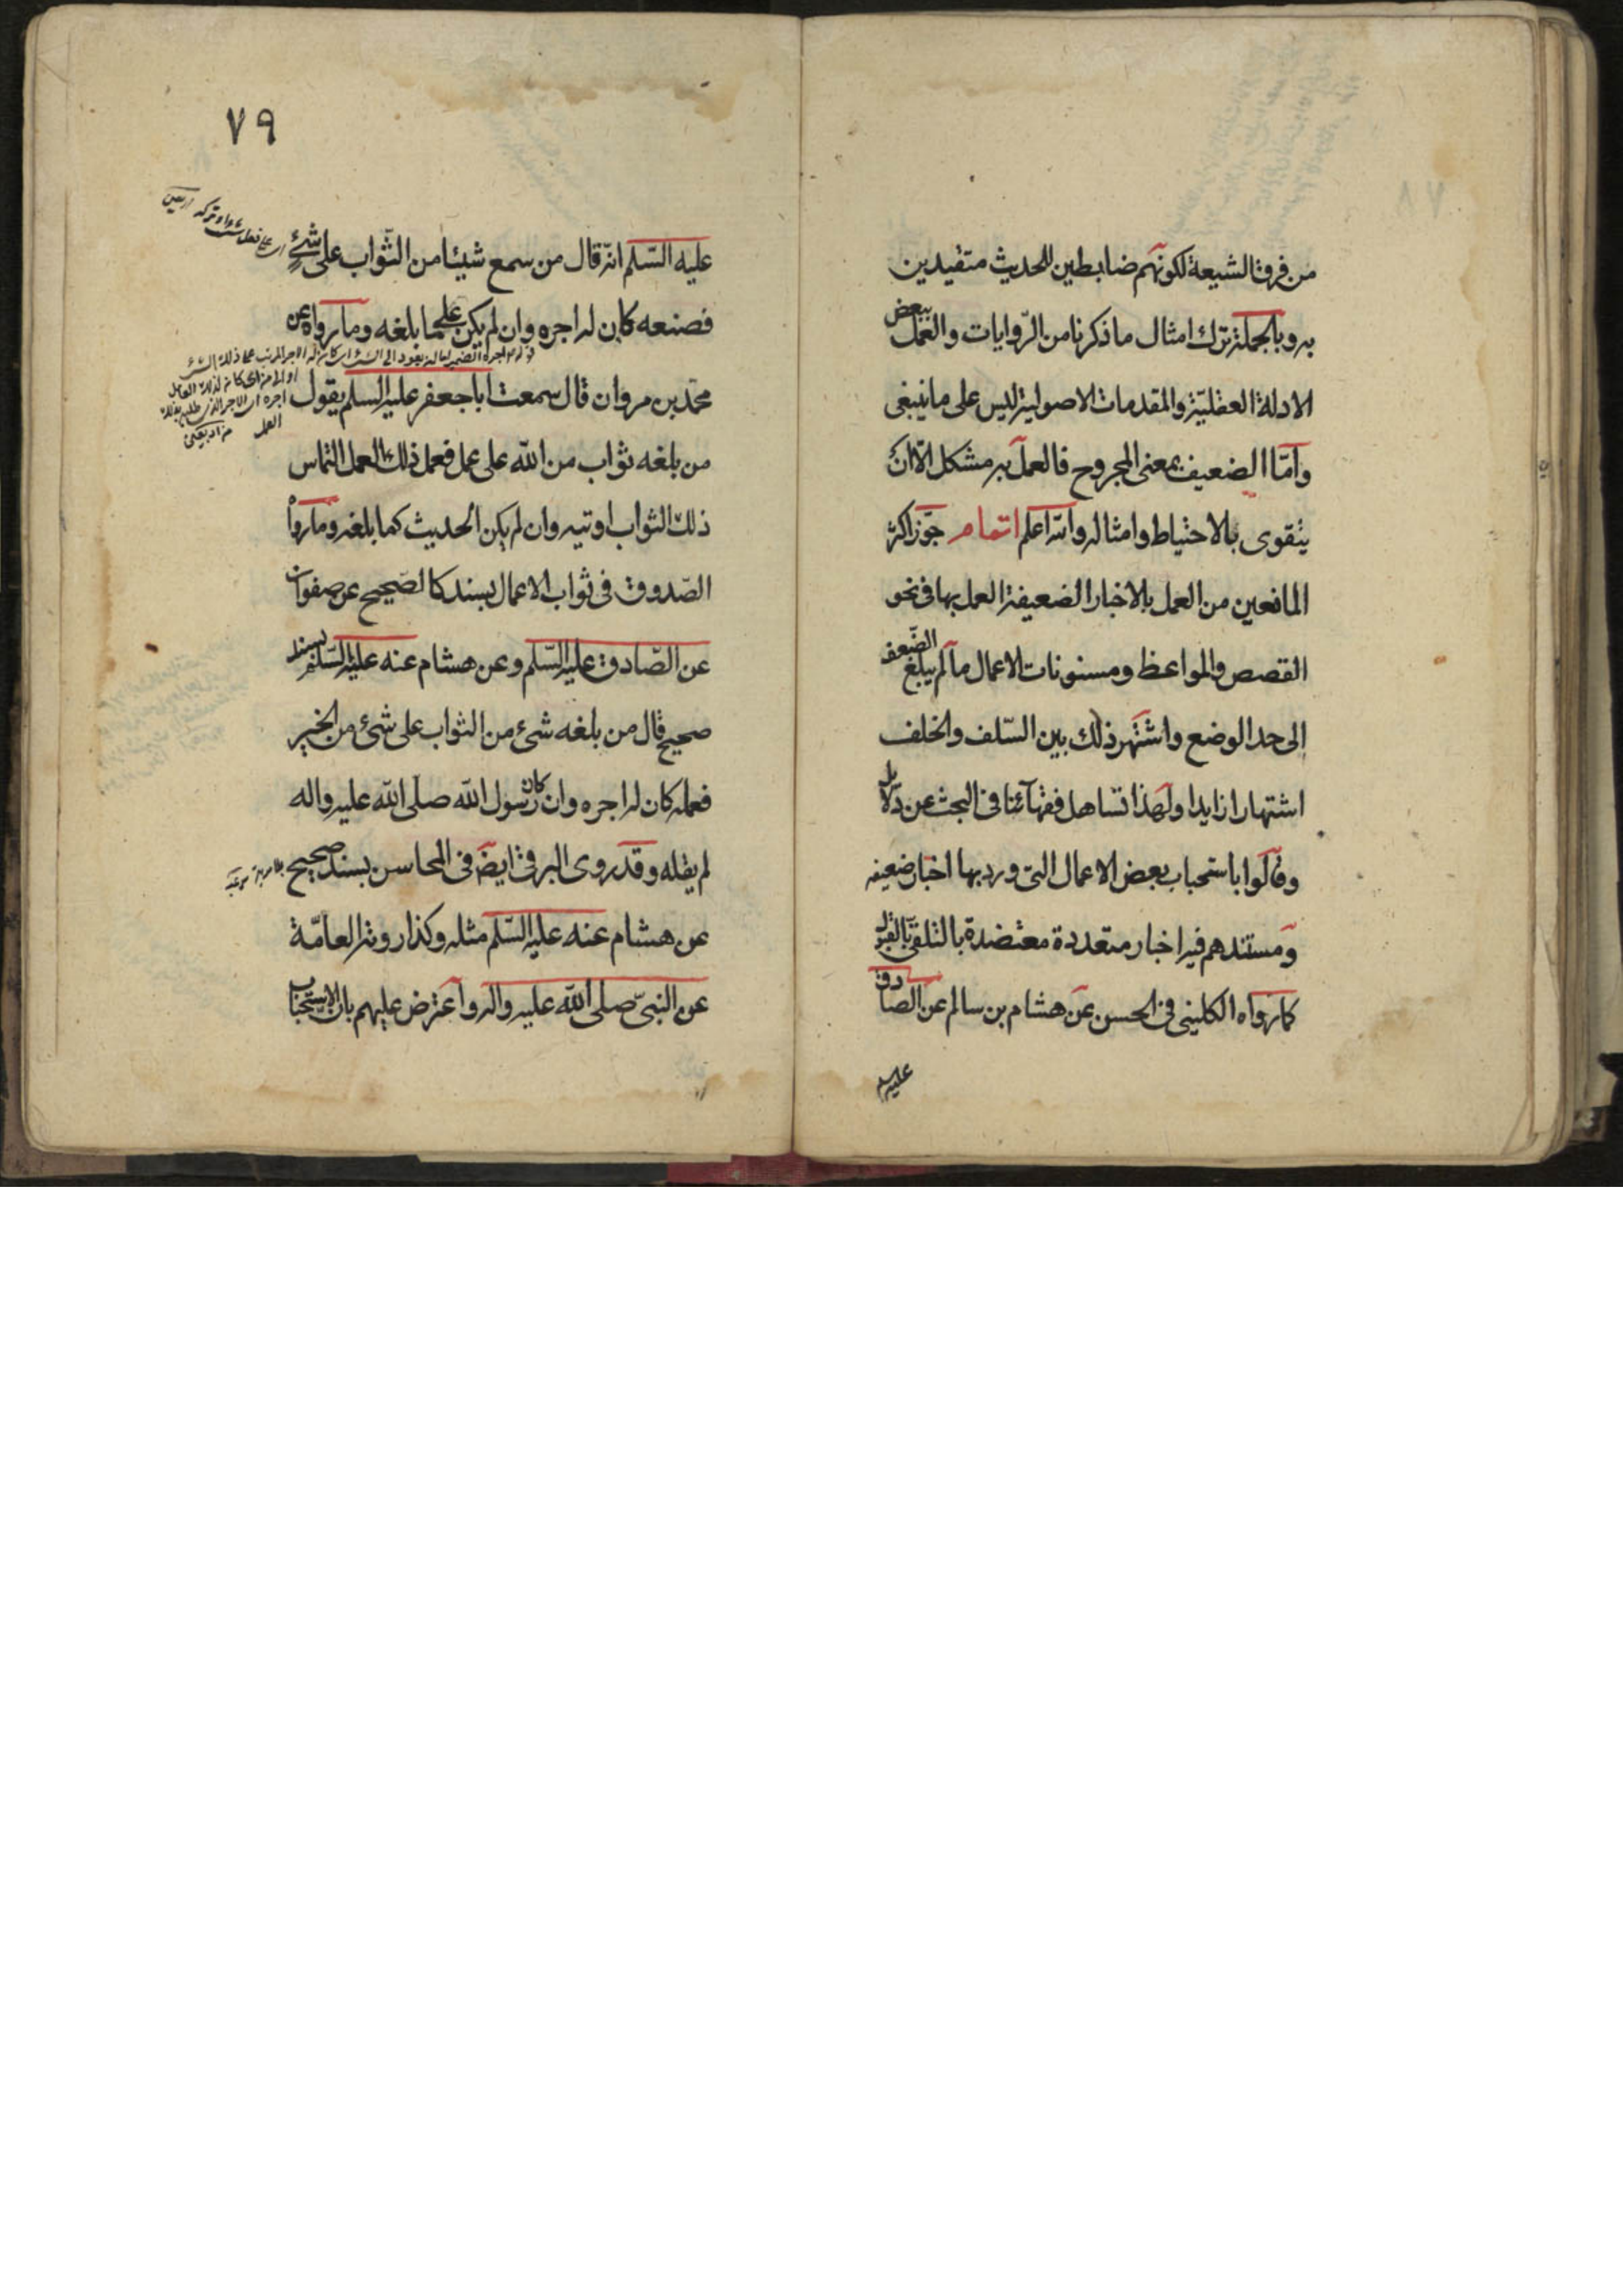 من فرق الشيعة لكونهم ضابطين للحديث متقيدين
به وبالجملة ترك امثال ما ذكرنا من الروايات والعمل ببعض
الادلة العقليّة والمقدمات الاصولية ليس على ما ينبغى
وامّا الضعيف بمعنى المجروح فالعمل به مشكل الّا انّه
يتقوى بالاحتياط وامثاله والله اعلم اتمام جوّز اكثر
المانعين من العمل بالاخبار الضعيفة العمل بها فى نحو
القصص والمواعظ ومسنونات الاعمال ما لم يبلغ الضّعف
الى حد الوضع واشتهر ذلك بين السّلف والخلف
اشتهارا زايدا ولهذا تساهل فقهآئنا فى البحث عن دلايل
وقالوا باستحباب بعض الاعمال التى ورد بها اخبار ضعيفه
ومستندهم فيه اخبار متعددة معتضدة بالتلقى بالقبول
كما رواه الكلينى فى الحسن عن هشام بن سالم عن الصادق
عليه
٧٩
عليه السّلم انّه قال من سمع شيئا من الثّواب على شئ
فصنعه كان له اجره وان لم يكن على ما بلغه وما رواه عن
محمّد بن مروان قال سمعت ابا جعفر عليه السلم يقول
من بلغه ثواب من الله على عمل فعمل ذلك العمل التماس
ذلك الثواب اوتيه وان لم يكن الحديث كما بلغه وما رواه
الصّدوق فى ثواب الاعمال بسند كالصّحيح عن صفوان
عن الصّادق عليه السّلم وعن هشام عنه عليه السّلم بسند
صحيح قال من بلغه شئ من الثواب على شئ من الخير
فعمله كان له اجره وان كان رسول الله صلى الله عليه واله
لم يقله وقد روى البرقى ايضَ فى المحاسن بسند صحيح
عن هشام عنه عليه السّلم مثله وكذا روته العامّة
عن النبىّ صلى الله عليه واله واعترض عليهم بان الاستحباب